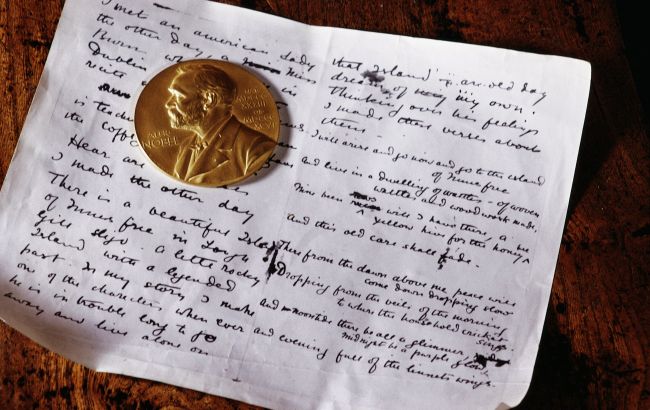 I met an american lady
the other day, a Miss
Burn, who is
Dublin
recite
is teach
the coffee
Hear are
I made the other day
There is a beautiful Island
of Innis free in Lough
Gill Sligo. A little rocky
Island with a legended
past. In my story I make
one of the characters when ever
he is in trouble long to go
away and live alone on
that Island – an old day
dream of my own.
Thinking over his feelings
I made these verses about
them –
I will arise and go now and go to the island
of Innis free
and live in a dwelling of wattles – of woven
wattles and wood work made,
Nine been rows will I have there, a
yellow hive for the honey
And this old care shall fade.
There from the dawn above me peace will
come down dropping slow
Dropping from the veils of the morning
to where the household cricket
sings.
And noontide there be all a glimmer,
midnight be a purple glow
and evening full of the linnets wings.
ALFR.
NOBEL